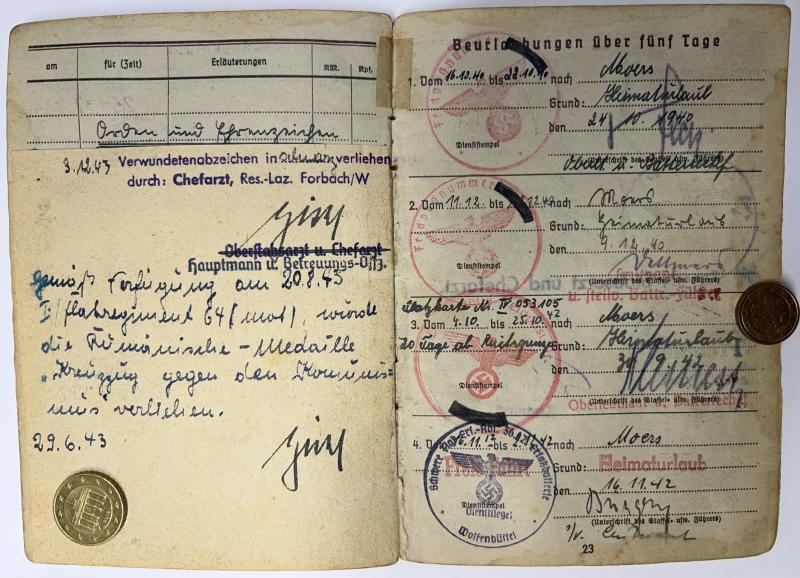 am für (Zeit) Erläuterungen RM. Rpf.
Orden und Ehrenzeichen
9.12.43 Verwundetenabzeichen in schwarz verliehen
durch: Chefarzt, Res.-Laz. Forbach/W
Oberstabsarzt u. Chefarzt
Hauptmann u. Betreuungs-Offz.
Gemäß Verfügung am 20.8.43
I/Flakregiment 64 (mot), wurde
die Rumänische-Medaille
"Kreuzzug gegen den Kommunis-
mus" verliehen.
29.6.43
Beurlaubungen über fünf Tage
1. Vom 16.10.40 bis 28.10.40 nach Moers
Grund: Heimaturlaub
den 24 10. 1940
Dienststempel
(Unterschrift des Staffel- usw. Führers)
Oberlt. u.
Feldpostnummer
2. Vom 11.12. bis 12.40 nach Moers
Grund: Heimaturlaub
den 9.12.40
Vollmers
Dienststempel
(Unterschrift des Staffel- usw. Führers)
u. stellv. Battr.-Führer
Nr. IV 053105
3. Vom 4.10. bis 25.10.42 nach Moers
20 Tage ab Grund: Heimaturlaub
den 30.9.42
Dienststempel
(Unterschrift des Staffel- usw. Führers)
Oberleutnant u. Batteriechef
4. Vom bis 42 nach Moers
Grund: Heimaturlaub
den 16.11.42
Dienststempel
(Unterschrift des Staffel- usw. Führers)
Wolfenbüttel
23